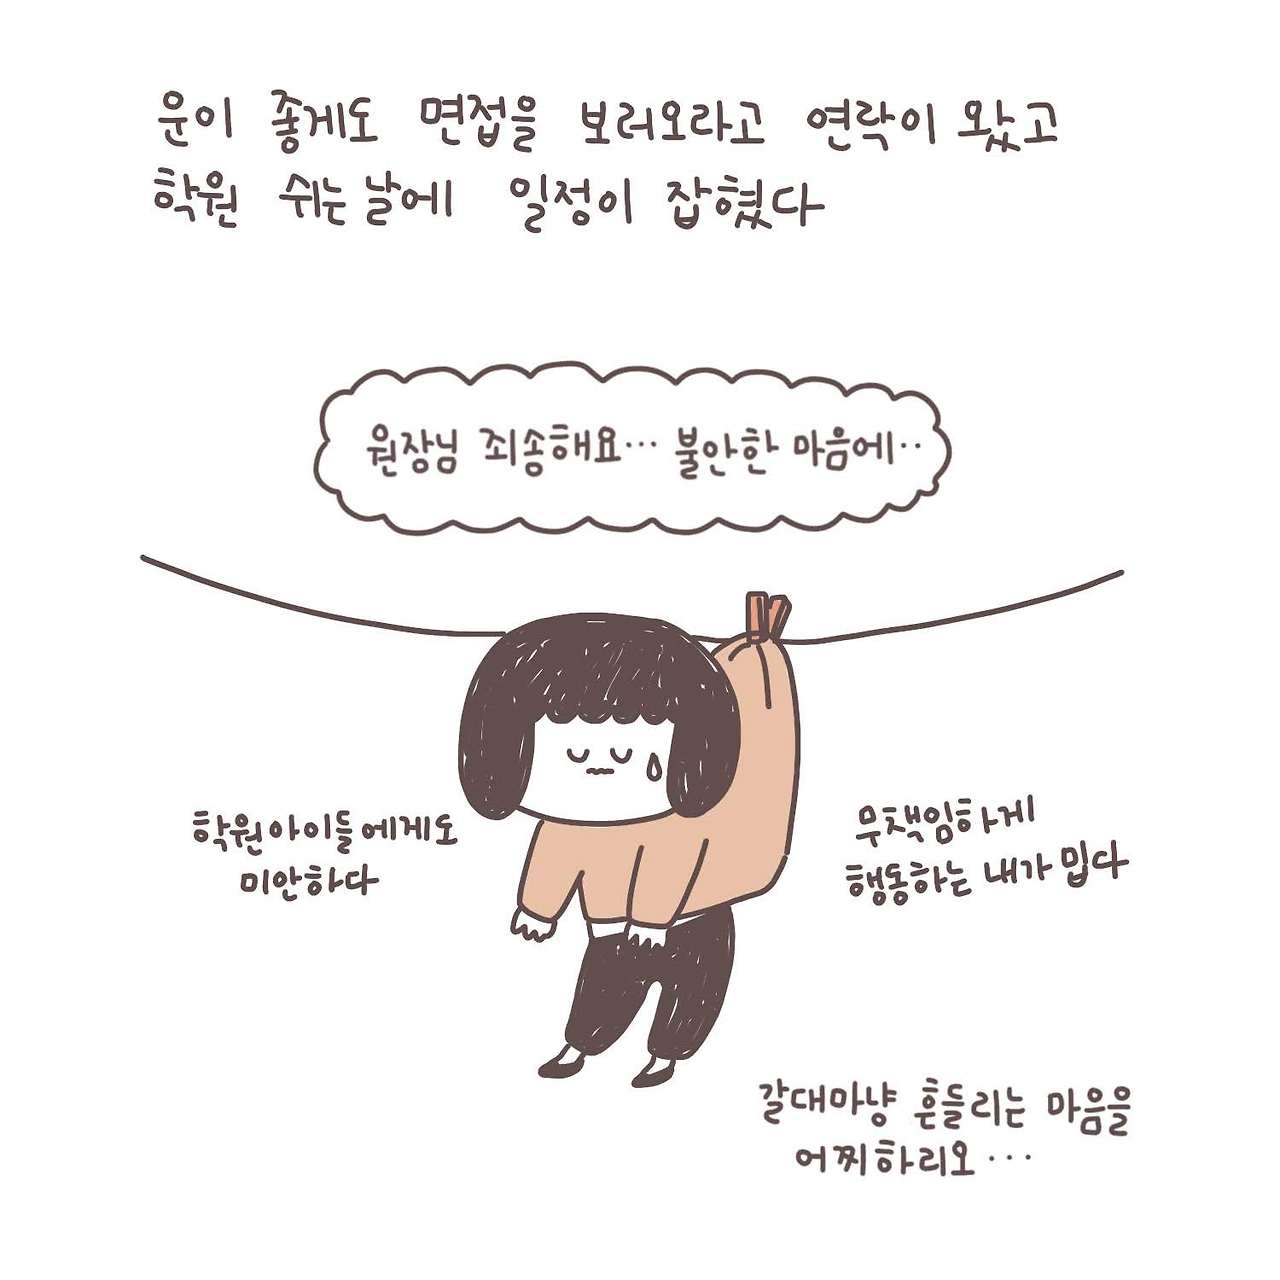 운이 좋게도 면접을 보러오라고 연락이 왔고
학원 쉬는 날에 일정이 잡혔다
원장님 죄송해요... 불안한 마음에..
학원아이들에게도
미안하다
무책임하게
행동하는 내가 밉다
갈대마냥 흔들리는 마음을
어찌하리오...